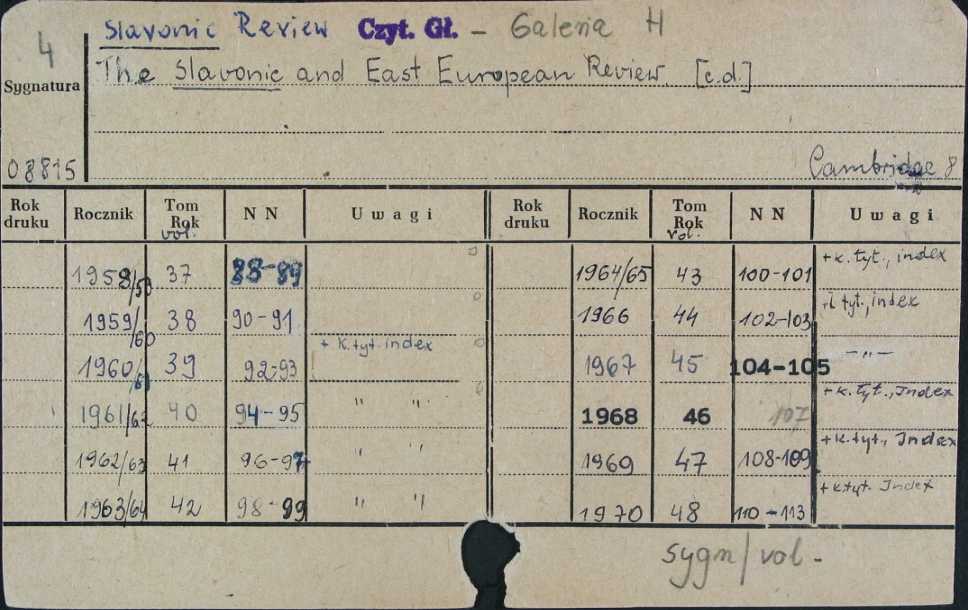 Slavonic Review Czyt. Gł. - Galeria H
4
The Slavonic and East European Review [c.d.]
Sygnatura
08815
Cambridge 8
Rok druku Rocznik Tom Rok vol. N N Uwagi Rok druku Rocznik Tom Rok vol. N N Uwagi
1958/59 37 88-89 1964/65 43 100-101 + k. tyt., index
1959/60 38 90-91 1966 44 102-103 tyt., index
1960/61 39 92-93 + k. tyt. index 1967 45 104-105 -"-
1961/62 40 94-95 " " 1968 46 107 + k. tyt., Index
1962/63 41 96-97 ' " 1969 47 108-109 + k. tyt., Index
1963/64 42 98-99 " " 1970 48 110-113 + k tyt. Index
sygn/vol -